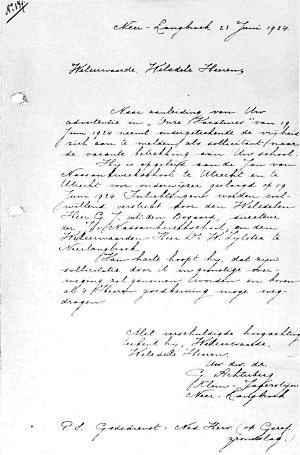 Neer-Langbroek 23 Juni 1924.
Weleerwaarde, Weledele Heeren,
Naar aanleiding van Uw
advertentie in "Onze Vacatures" van 19
Juni 1924 neemt ondergeteekende de vrijheid
zich aan te melden als sollicitant naar
de vacante betrekking aan Uw school.
Hij is opgeleid aan de Jan van
Nassaukweekschool te Utrecht en te
Utrecht voor onderwijzer geslaagd op 19
Juni 1924. Inlichtingen worden wel-
willend verstrekt door den Weledelen
Heer G. J. uit den Bogaard, directeur
der J. v. Nassaukweekschool, en den
Weleerwaarden Heer Ds. W.
Neerlangbroek.
Van harte hoopt hij, dat zijn
sollicitatie door U in gunstige over-
weging zal genomen worden en boven
al 's Heeren goedkeuring moge weg-
dragen.
Met verschuldigde hoogachting
teekent hij, Weleerwaarde,
Weledele Heeren,
Uw dw. dr.
G. Achterberg
Klein-Jagersteyn
Neer-Langbroek
P.S. Godsdienst: Ned. Herv. (op Geref.
grondslag.)